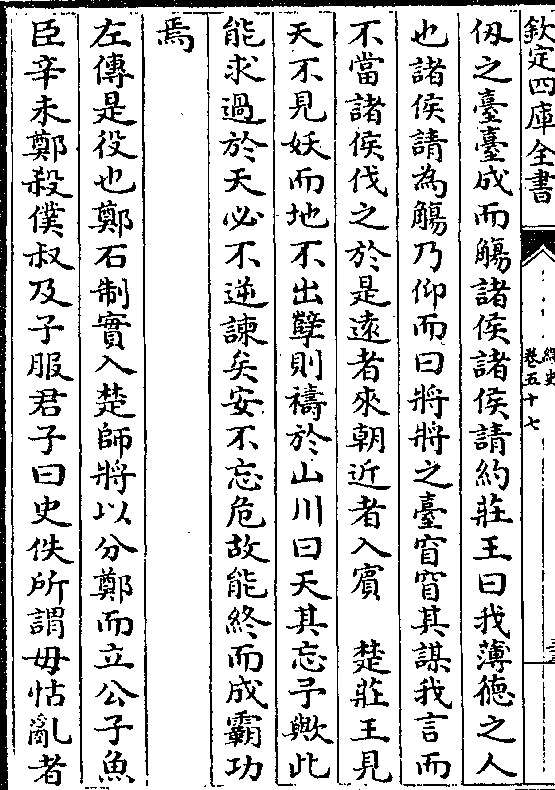 欽定四庫全書
繹史
卷五十七
仭之臺臺成而觴諸侯諸侯請約莊王曰我薄德之人
也諸侯請為觴乃仰而曰將將之臺窅窅其謀我言而
不當諸侯伐之於是遠者來朝近者入賓　楚莊王見
天不見妖而地不出孽則禱於山川曰天其忘予歟此
能求過於天必不逆諫矣安不忘危故能終而成霸功
焉
左傳是役也鄭石制實入楚師將以分鄭而立公子魚
臣辛未鄭殺僕叔及子服君子曰史佚所謂毋怙亂者